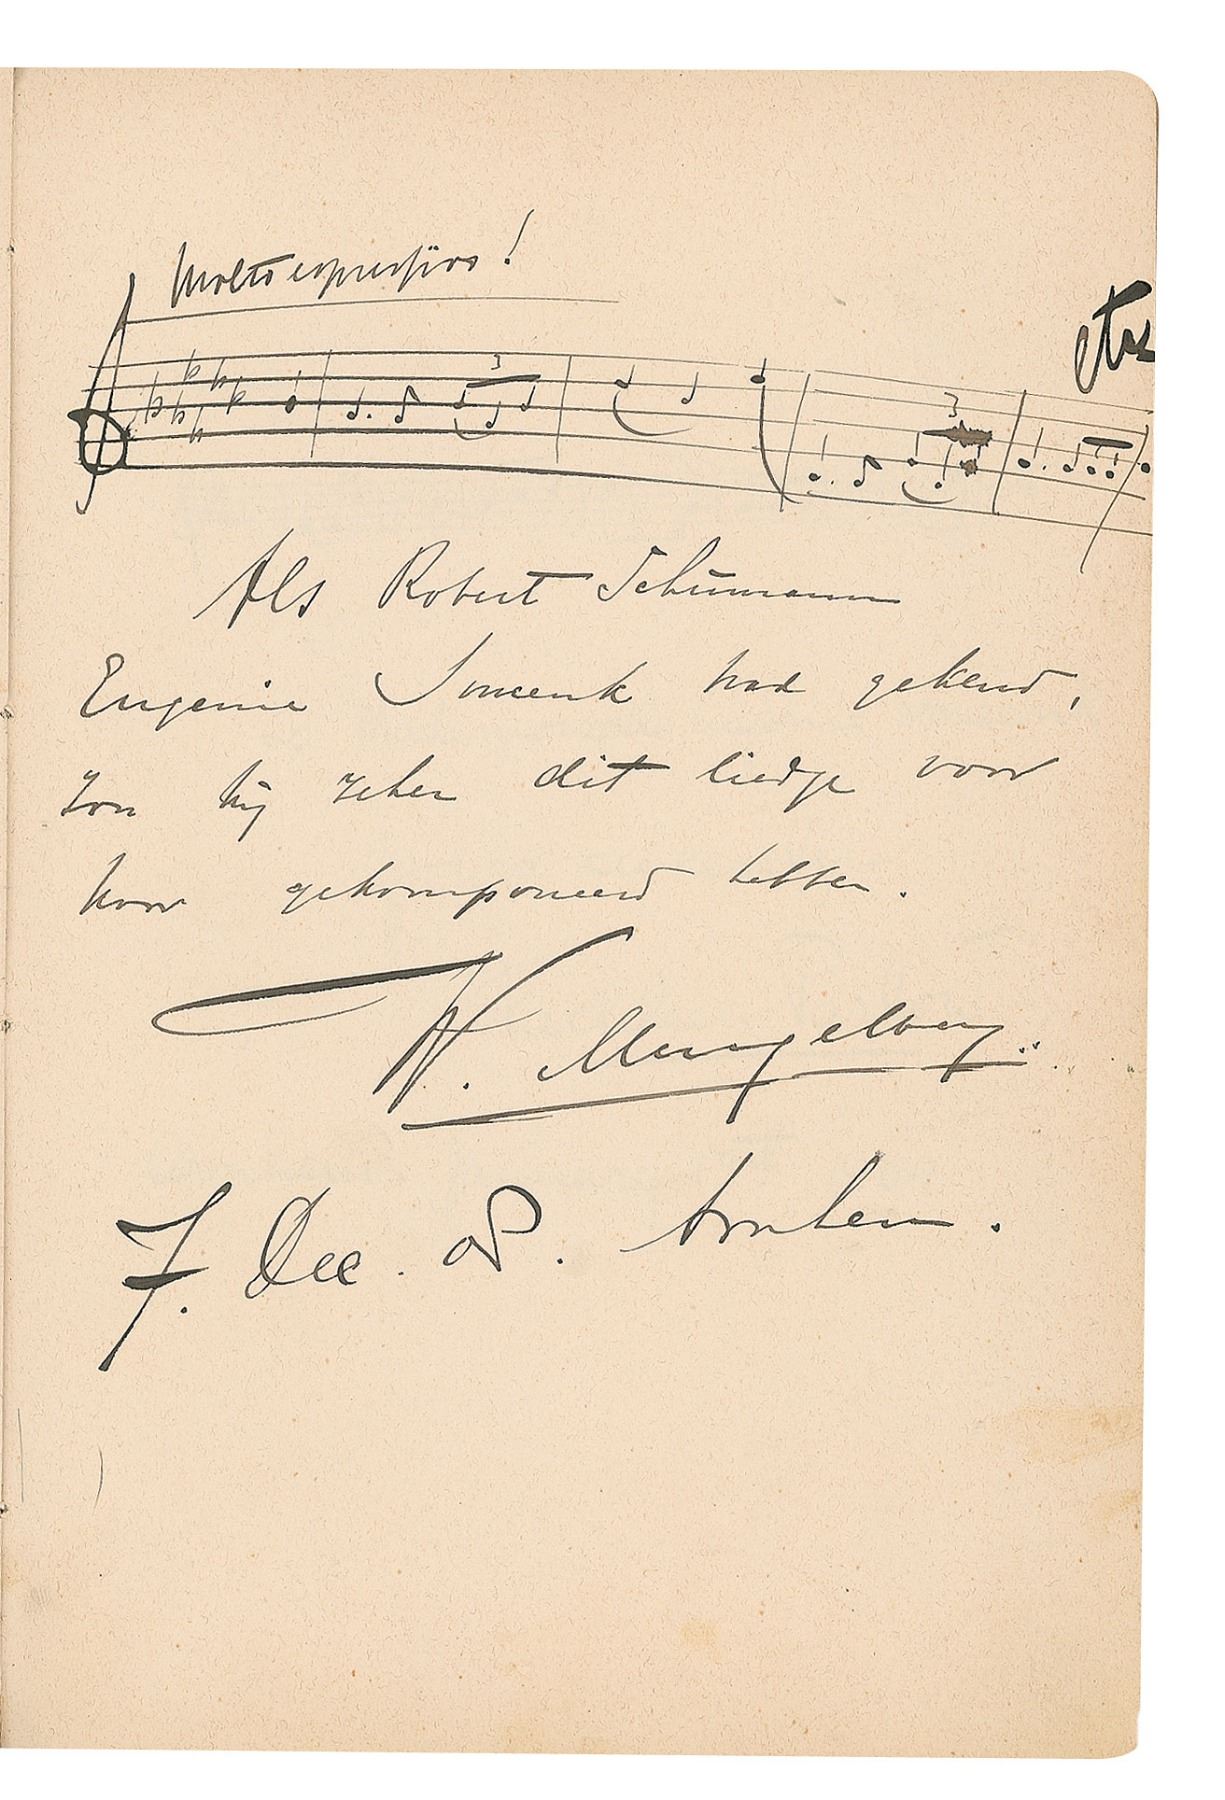 Molto espressivo!
etc
3
3
Als Robert Schumann
Eugenie had gekend,
zou hij zeker dit liedje voor
haar gekomponeerd hebben.
W. Mengelberg
7. Dec. 08. Arnhem.